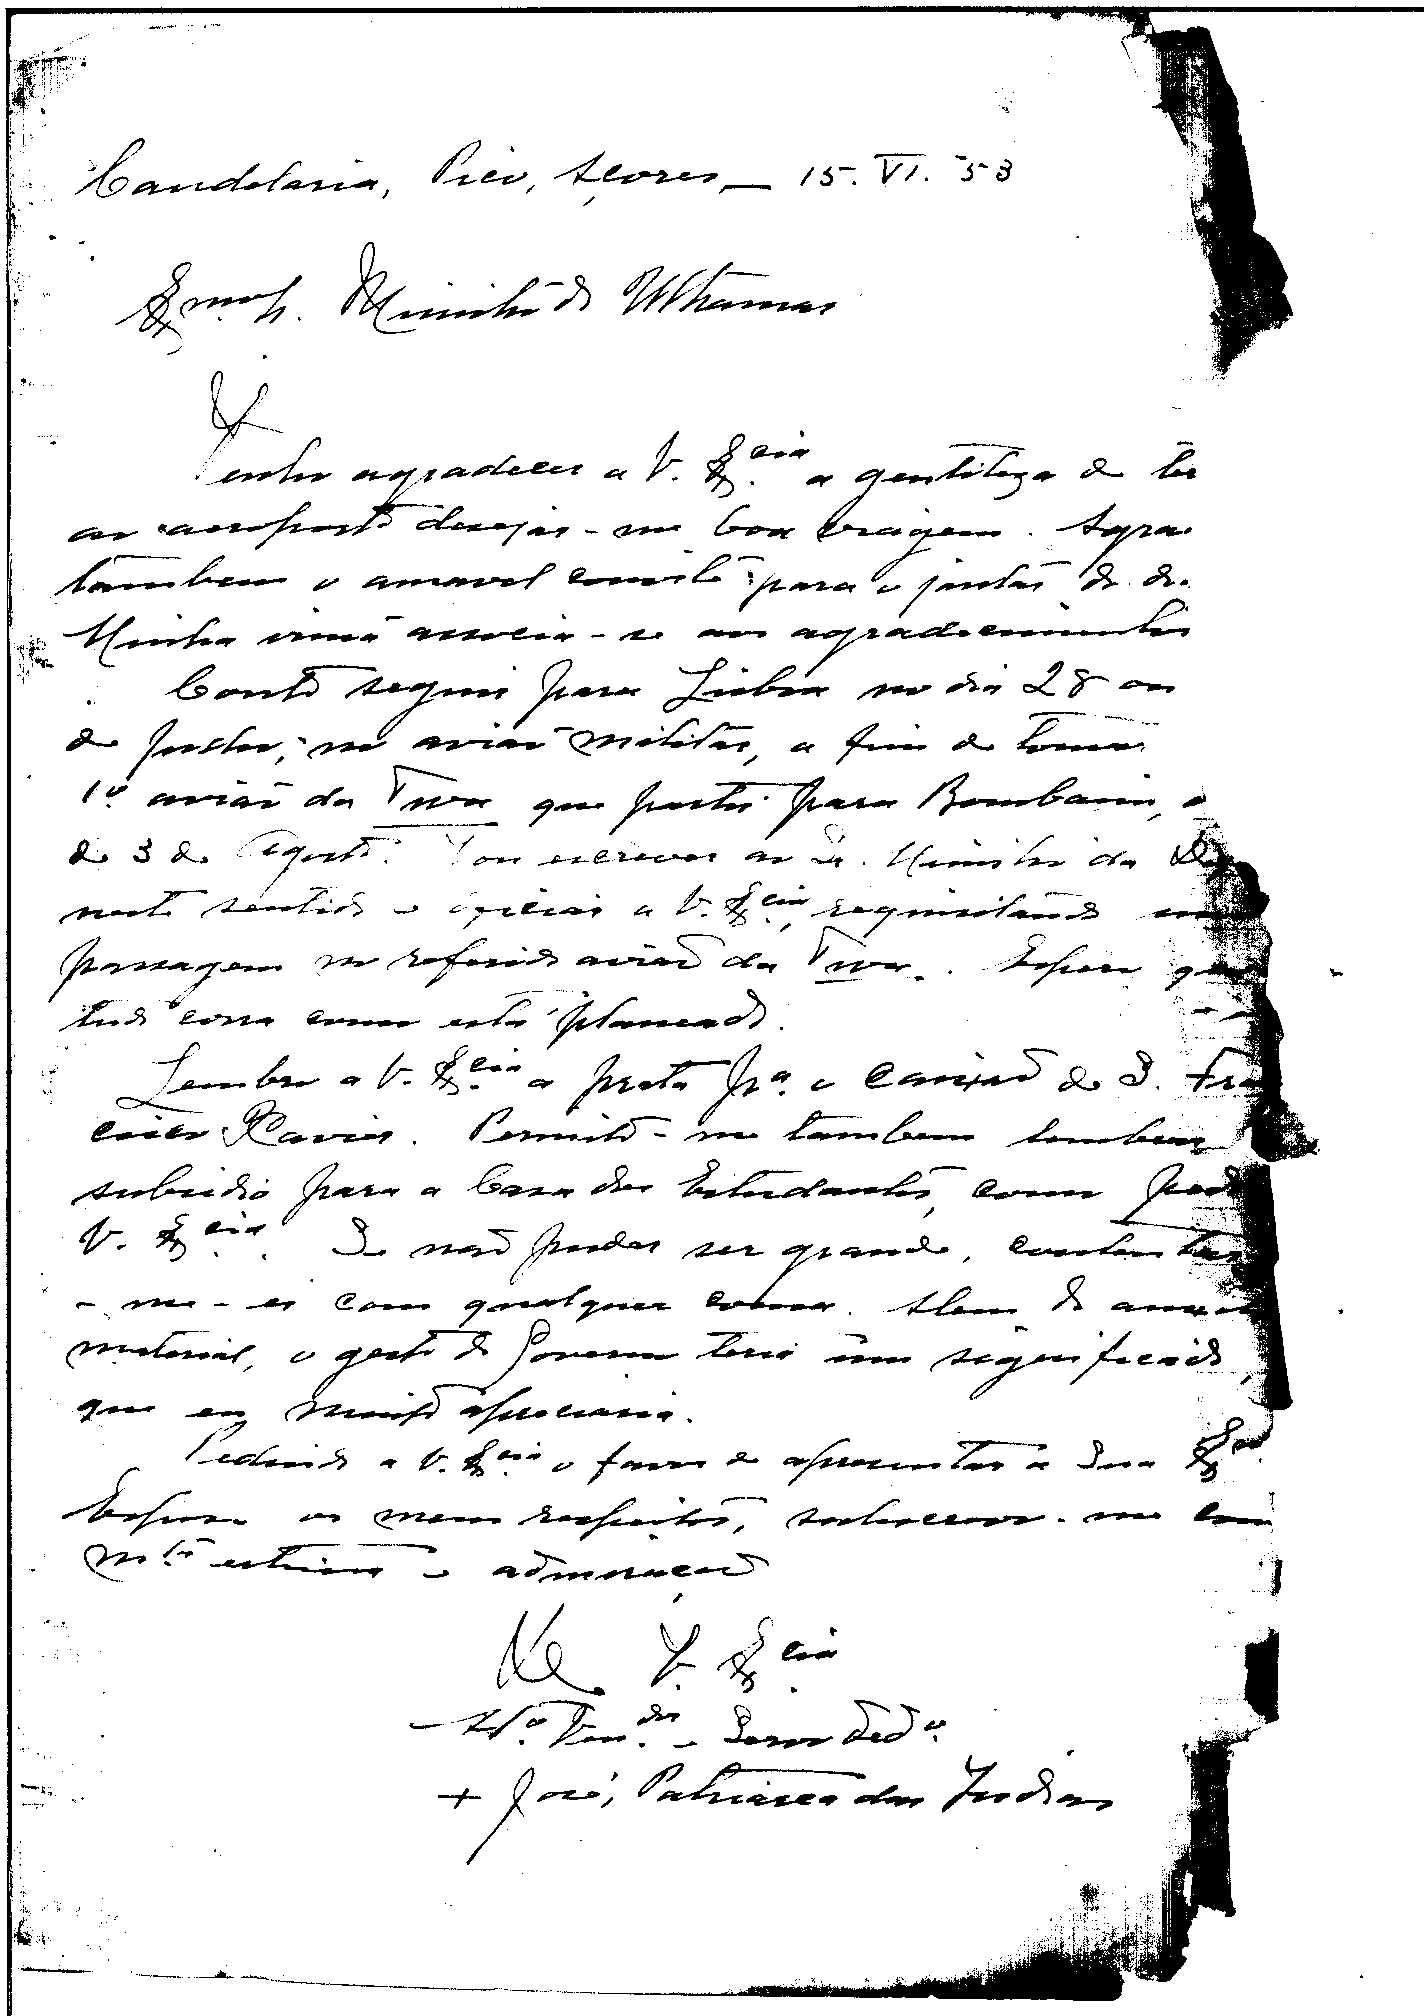 Candelaria, Pico, Açores, — 15. VI. 53
Exmo Sr. Ministro do Ultramar
Venho agradecer a V. Excia a gentileza de ter
ao aeroporto desejar-me boa viagem. Agra
tambem o amavel convite para o jantar de de
Minha irmã associa-se aos agradecimentos
Conto seguir para Lisboa no dia 28 ou
de Julho, no avião militar, a fim de tomar
1º avião da Twa que partir para Bombaim, a
de 3 de Agosto. Vou escrever ao Sr. Ministro da De
neste sentido e oficiar a V. Excia, requisitando uma
passagem no referido avião da Twa. Espero que
tudo corra como está planeado.
Lembro a V. Excia a prata pª o caixão de S. Fra
cisco Xavier. Permito-me tambem lembrar
subsidio para a Casa dos Estudantes, como pedi
V. Excia. Se não puder ser grande, contentar
-me-ei com qualquer coisa. Alem do
material, o gesto do Governo teria um significado,
que eu muito apreciaria.
Pedindo a V. Excia o favor de apresentar a Sua Exma
Esposa os meus respeitos, subscrevo-me com
mta estima e admiração
De V. Excia
Atº Vendor e Servo dedº
+ José, Patriarca das Indias